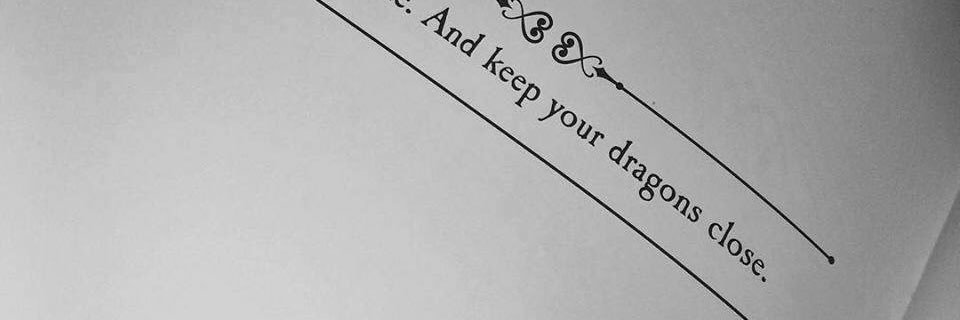 And keep your dragons close.